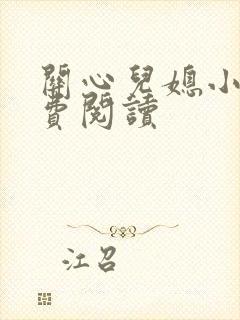 關心兒媳小
費閱讀
江召